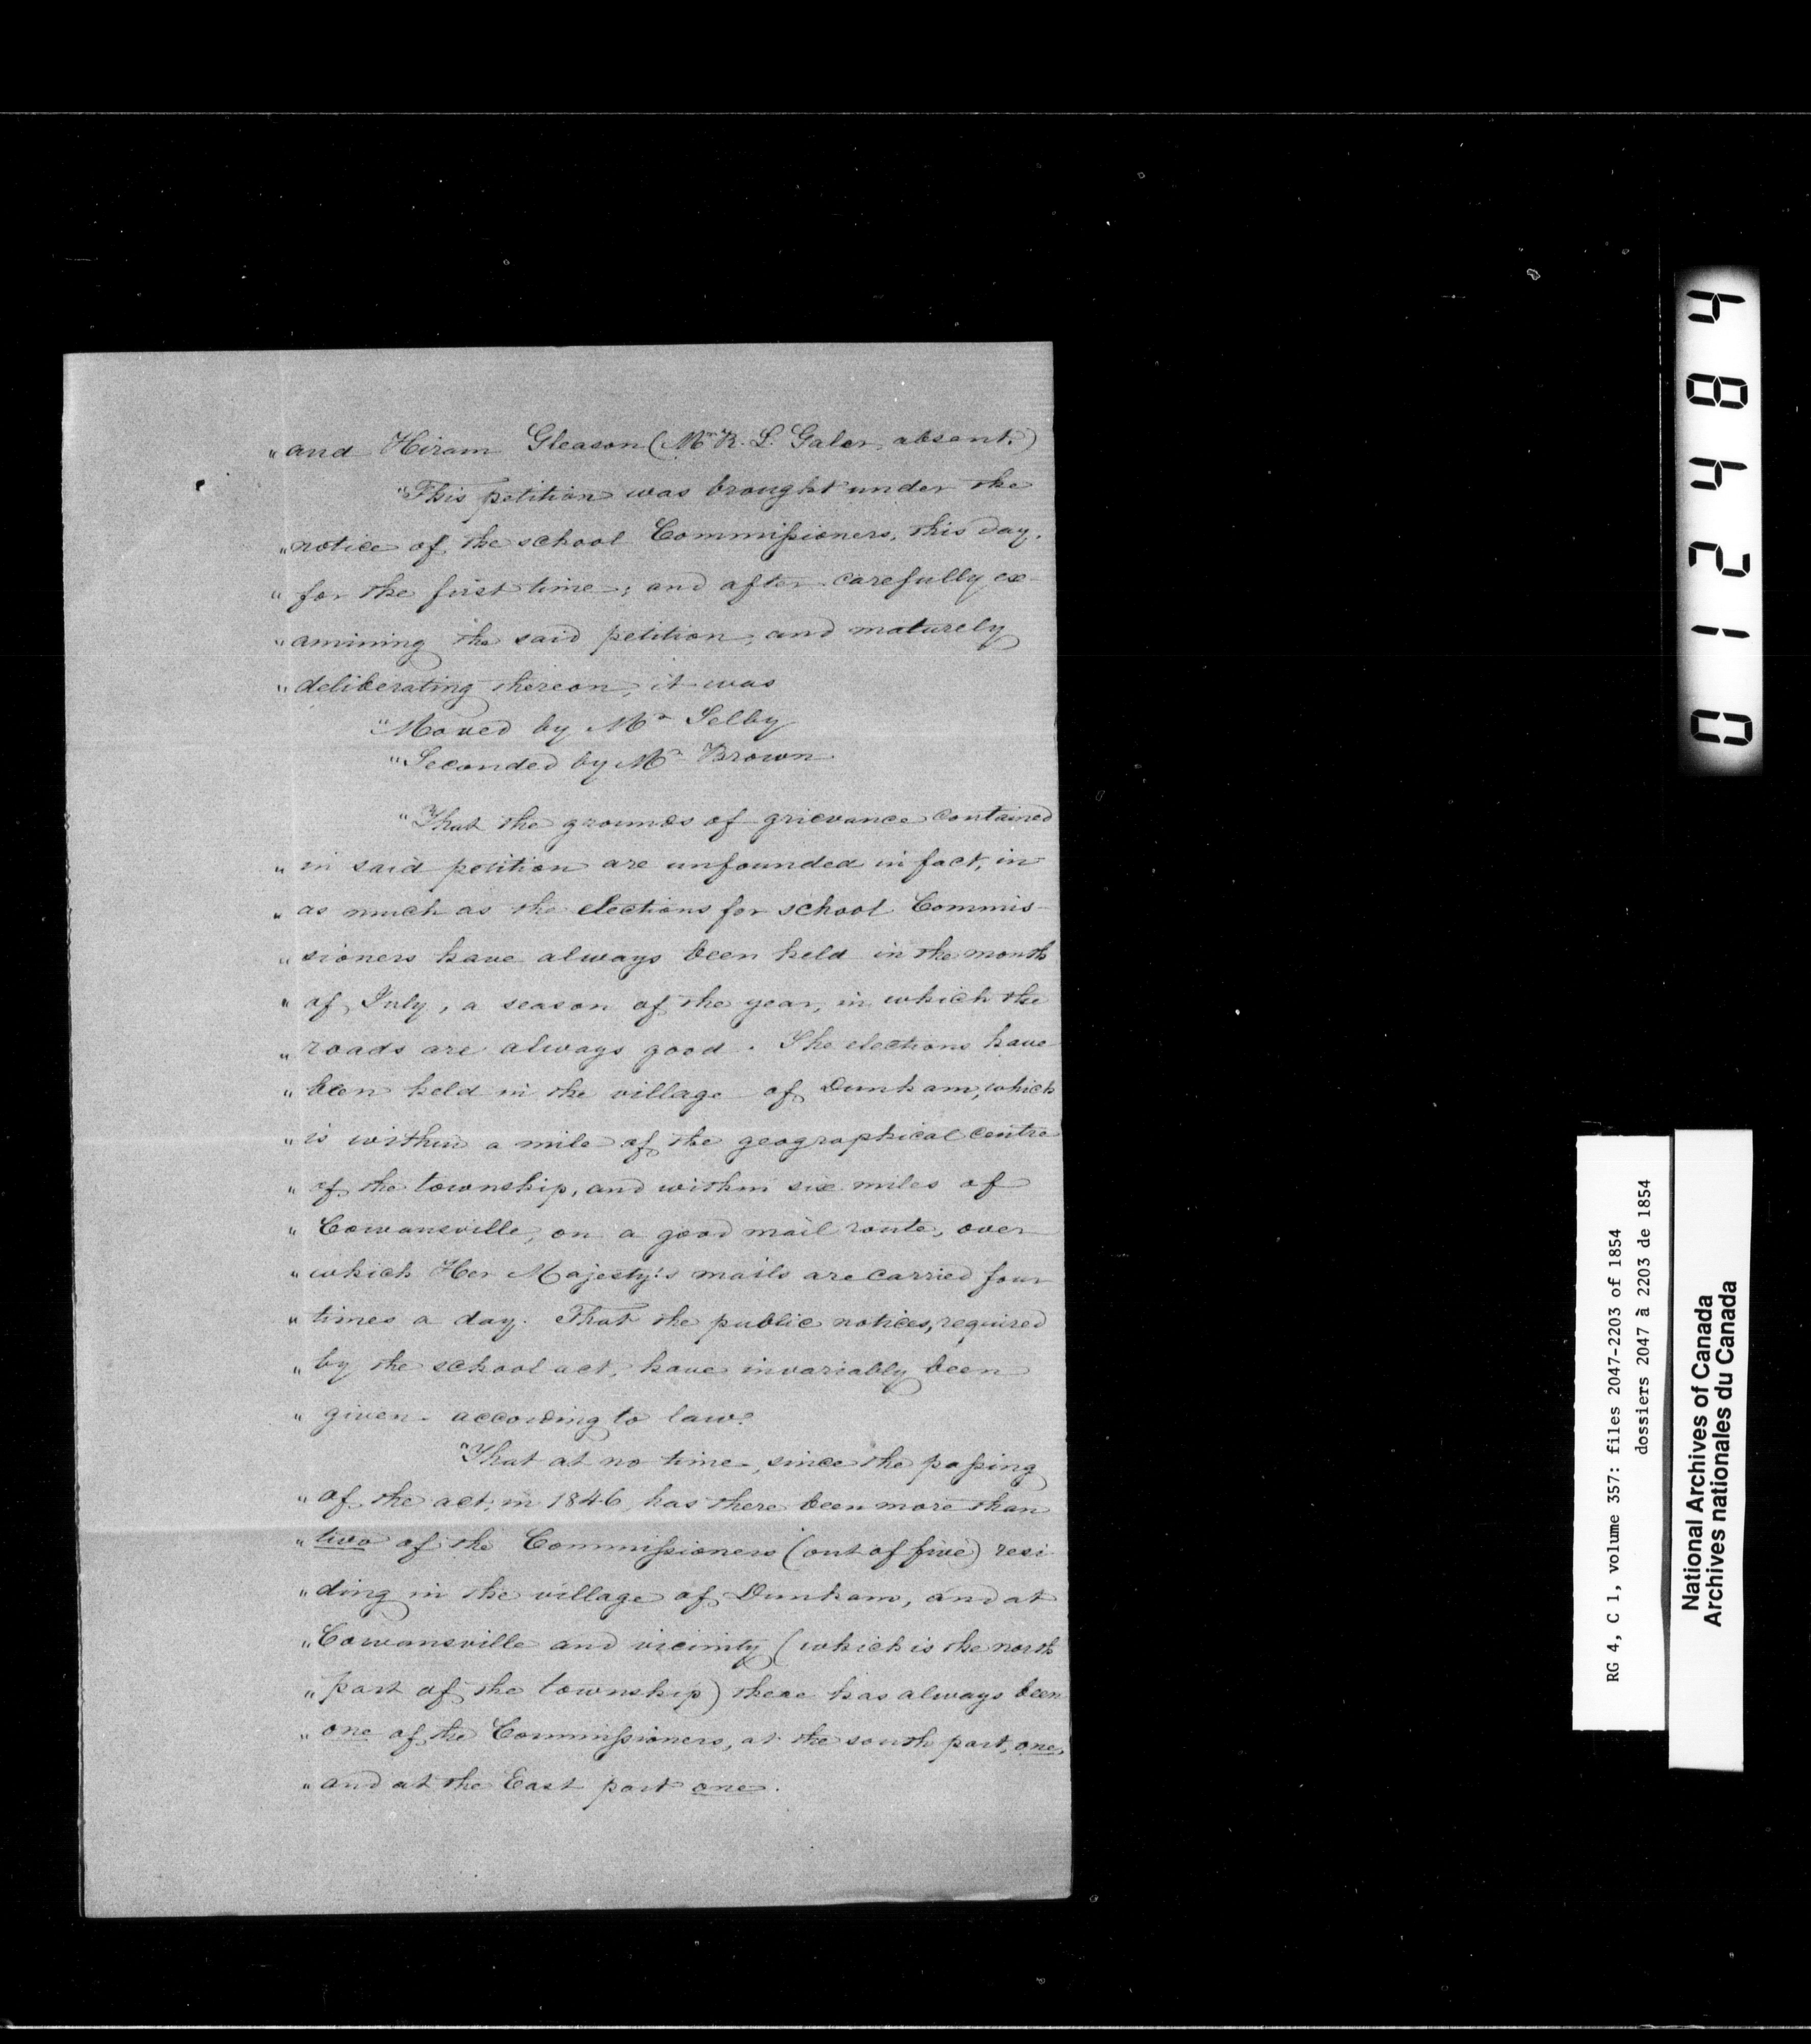 „ and Hiram Gleason (Mr R. L. Galer, absent.)
"This petition was brought under the
„ notice of the school Commissioners, this day,
„ for the first time; and after carefully ex-
„ amining the said petition, and maturely
„ deliberating thereon, it was
"Moved by Mr Selby
"Seconded by Mr Brown
"That the grounds of grievance contained
„ in said petition are unfounded in fact, in
„ as much as the elections for school Commis-
„ sioners have always been held in the month
„ of July, a season of the year, in which the
„ roads are always good. The elections have
„ been held in the village of Dunham, which
„ is within a mile of the geographical centre
„ of the township, and within six miles of
„ Cowansville, on a good mail route, over
„ which Her Majesty's mails are carried four
„ times a day. That the public notices, required
„ by the school act, have invariably been
„ given according to law.
"That at no time, since the passing
„ of the act, in 1846, has there been more than
„ two of the Commissioners (out of five) resi
„ ding in the village of Dunham, and at
„ Cowansville and vicinity (which is the north
„ part of the township) there has always been
„ one of the Commissioners, at the south part, one,
„ and at the East part one.
0 1 2 4 4 8 4
RG 4, C 1, volume 357: files 2047-2203 of 1854
dossiers 2047 à 2203 de 1854
National Archives of Canada
Archives nationales du Canada